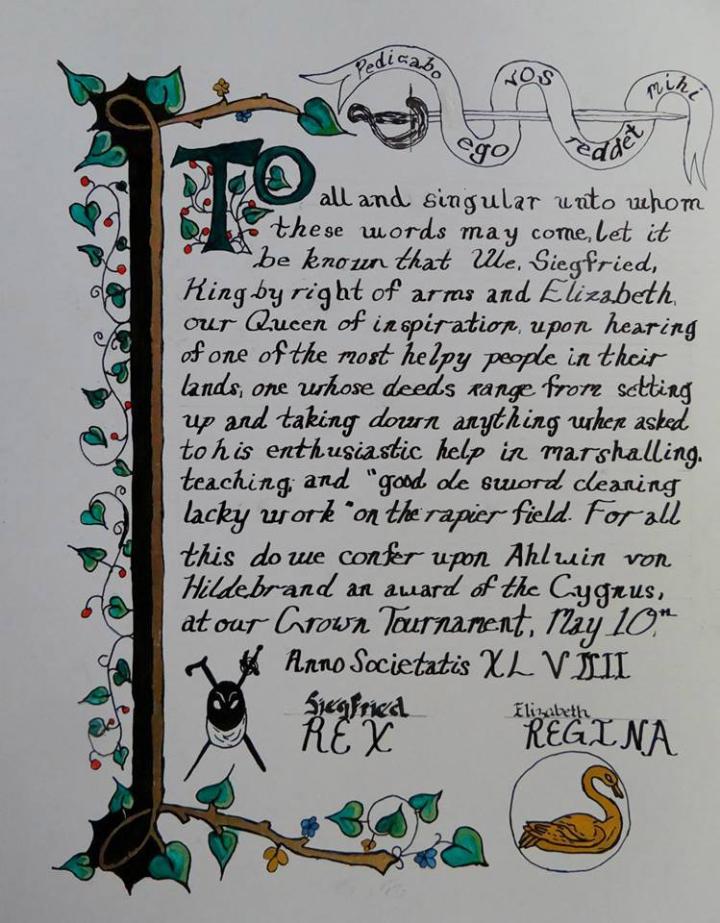 Pedicabo ego vos reddet mihi
To all and singular unto whom
these words may come, let it
be known that We, Siegfried,
King by right of arms and Elizabeth,
our Queen of inspiration, upon hearing
of one of the most helpy people in their
lands, one whose deeds range from setting
up and taking down anything when asked
to his enthusiastic help in marshalling,
teaching, and "good ole sword cleaning
lacky work" on the rapier field. For all
this do we confer upon Ahlwin von
Hildebrand an award of the Cygnus,
at our Crown Tournament, May 10th,
Anno Societatis XL VIIII
Siegfried
REX
Elizabeth
REGINA